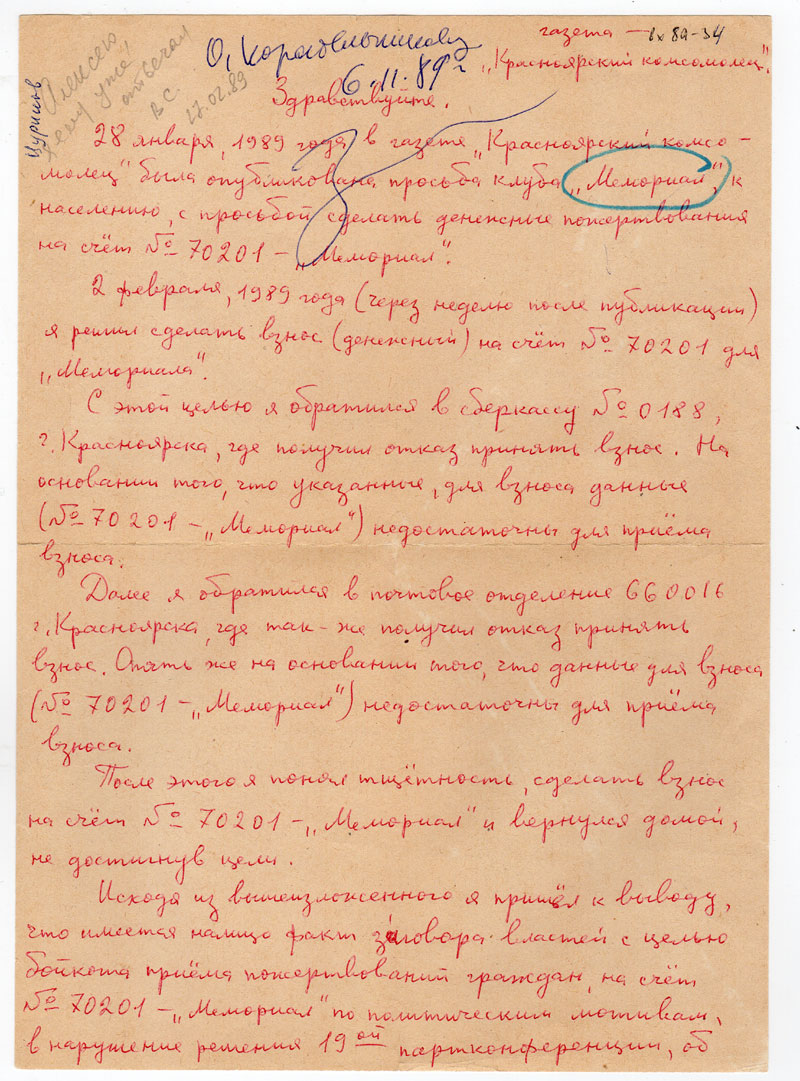 газета — вх 89-34
О. Корабельникову
6.11.89г
„Красноярский комсомолец".
Цуриков
Алексею
уже
отвечал
В.С.
17.02.89
Здравствуйте.
28 января, 1989 года в газете „Красноярский комсо-
молец" была опубликована просьба клуба „Мемориал", к
населению, с просьбой сделать денежные пожертвования
на счёт № 70201 – „Мемориал".
2 февраля, 1989 года (через неделю после публикации)
я решил сделать взнос (денежный) на счёт № 70201 для
„Мемориала".
С этой целью я обратился в сберкассу № 0188,
г. Красноярска, где получил отказ принять взнос. На
основании того, что указанные, для взноса данные
(№ 70201 – „Мемориал") недостаточны для приёма
взноса.
Далее я обратился в почтовое отделение 660016
г. Красноярска, где так-же получил отказ принять
взнос. Опять же на основании того, что данные для взноса
(№ 70201 – „Мемориал") недостаточны для приёма
взноса.
После этого я понял тщётность, сделать взнос
на счёт № 70201 – „Мемориал" и вернулся домой,
не достигнув цели.
Исходя из вышеизложенного я пришёл к выводу,
что имеется налицо факт заговора властей с целью
бойкота приёма пожертвований граждан, на счёт
№ 70201 – „Мемориал" по политическим мотивам,
в нарушение решения 19ой партконференции, об